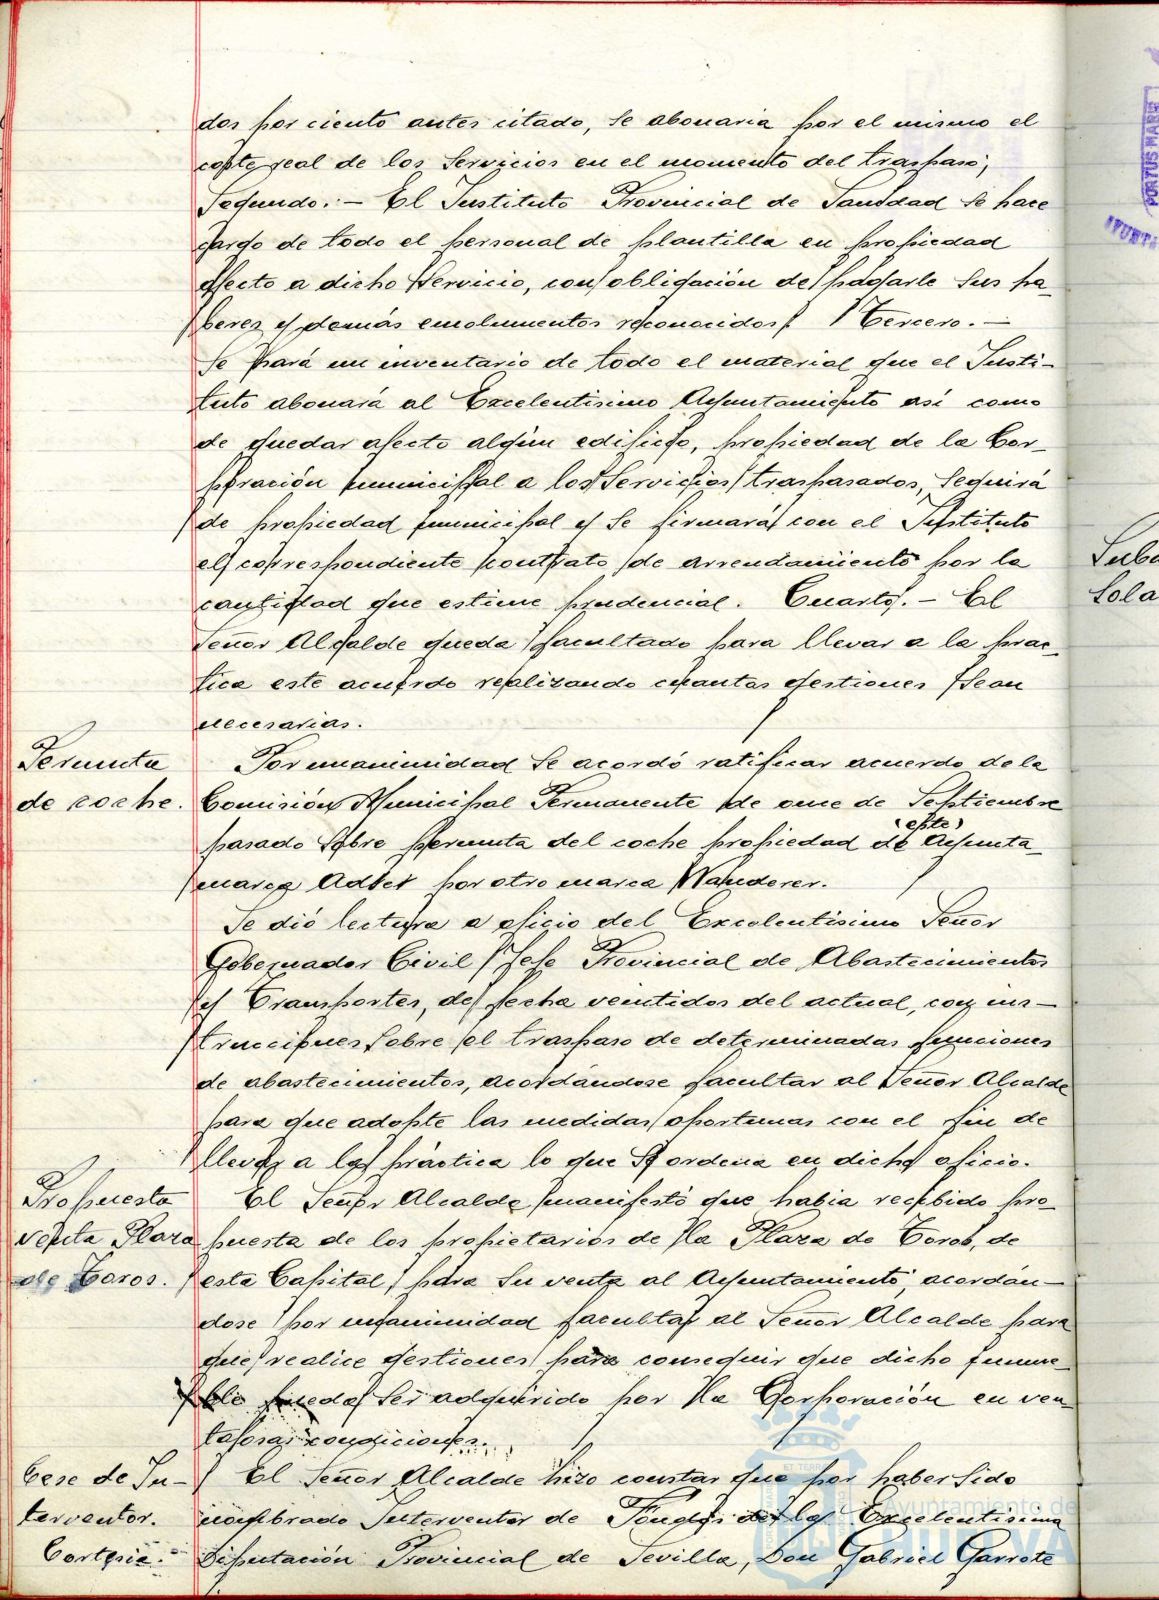 dos por ciento antes citado, se abonaria por el mismo el
coste real de los Servicios en el momento del traspaso;
Segundo.- El Instituto Provincial de Sanidad se hace
cargo de todo el personal de plantilla en propiedad
afecto a dicho Servicio, con obligación de pagarle sus ha-
beres y demás emolumentos reconocidos. Tercero.-
Se hará un inventario de todo el material que el Insti-
tuto abonará al Excelentisimo Ayuntamiento así como
de quedar afecto algún edificio, propiedad de la Cor-
poración municipal a los Servicios traspasados, seguirá
de propiedad municipal y se firmará con el Instituto
el correspondiente contrato de arrendamiento por la
cantidad que estime prudencial. Cuarto.- El
Señor Alcalde queda facultado para llevar a la prac-
tica este acuerdo realizando cuantas gestiones sean
necesarias.
Permuta
de coche.
Por unanimidad se acordó ratificar acuerdo de la
Comisión Municipal Permanente de once de Septiembre
(este)
pasado sobre permuta del coche propiedad de Ayunta-
marca Adler por otro marca Wanderer.
Se dió lectura a oficio del Excelentisimo Señor
Gobernador Civil Jefe Provincial de Abastecimientos
y Transportes, de fecha veintidos del actual, con ins-
trucciones sobre el traspaso de determinadas funciones
de abastecimientos, acordándose facultar al Señor Alcalde
para que adopte las medidas oportunas con el fin de
llevar a la práctica lo que se ordena en dicho oficio.
Propuesta
venta Plaza
de Toros.
El Señor Alcalde manifestó que habia recibido pro-
puesta de los propietarios de la Plaza de Toros, de
esta Capital, para su venta al Ayuntamiento, acordán-
dose por unanimidad facultar al Señor Alcalde para
que realice gestiones para conseguir que dicho inmue-
ble pueda ser adquirido por la Corporación en ven-
tajosas condiciones.
Cese de In-
terventor.
Cortesia.-
El Señor Alcalde hizo constar que por haber sido
nombrado Interventor de Fondos de la Excelentisima
Diputación Provincial de Sevilla, Don Gabriel Garrote
PORTUS MARIS
Ayuntamiento de
HUELVA